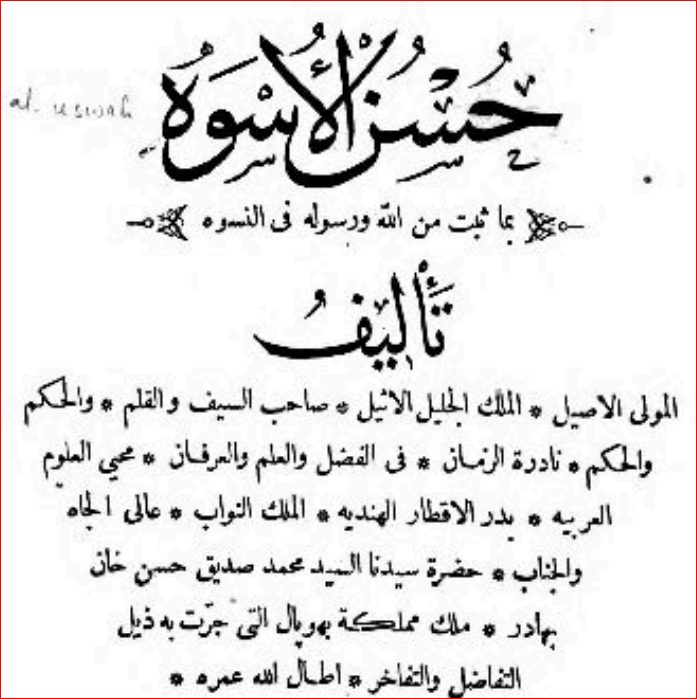 حُسْنُ الْأُسْوَةُ
al. uswah
بما ثبت من الله ورسوله فى النسوه
تأليفُ
المولى الاصيل * الملك الجليل الاثيل * صاحب السيف والقلم * والحكم
والحكم * نادرة الزمان * فى الفضل والعلم والعرفان * محيي العلوم
العربيه * بدر الاقطار الهنديه * الملك النواب * عالى الجاه
والجناب * حضرة سيدنا السيد محمد صديق حسن خان
بهادر * ملك مملكة بهوپال التى جرّت به ذيل
التفاضل والتفاخر * اطال الله عمره *